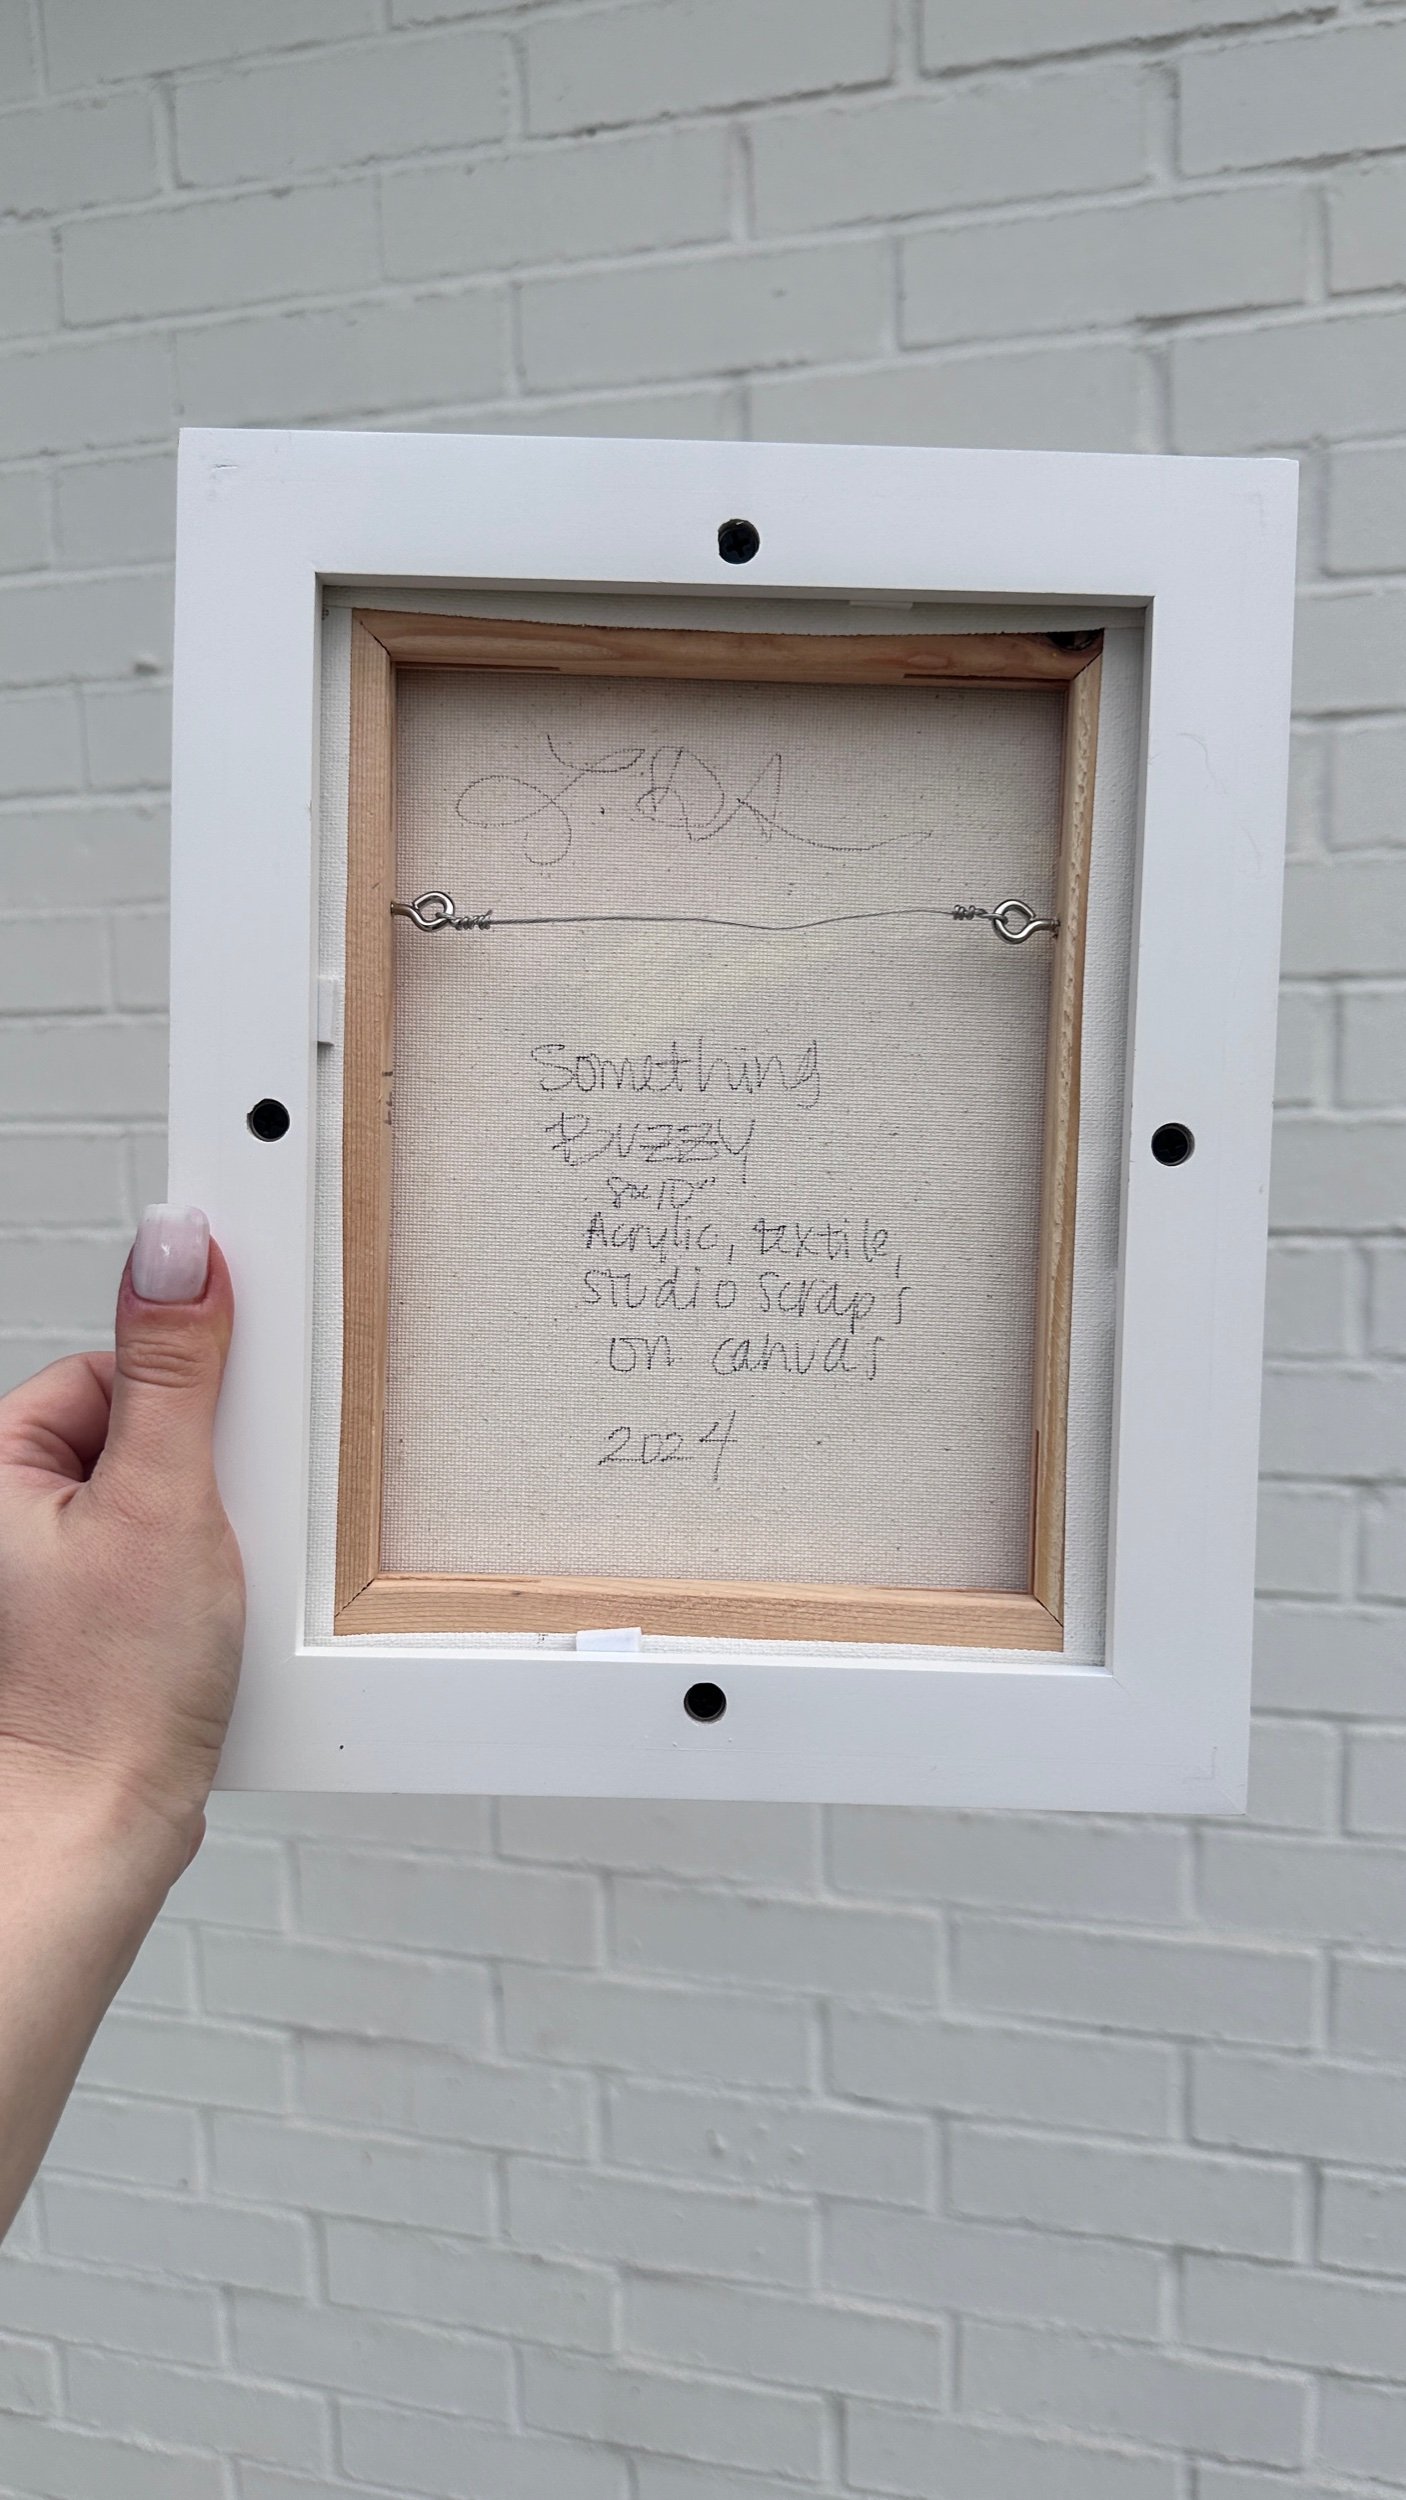 Something
Buzzy
8x10"
Acrylic, textile,
studio scraps
on canvas
2024